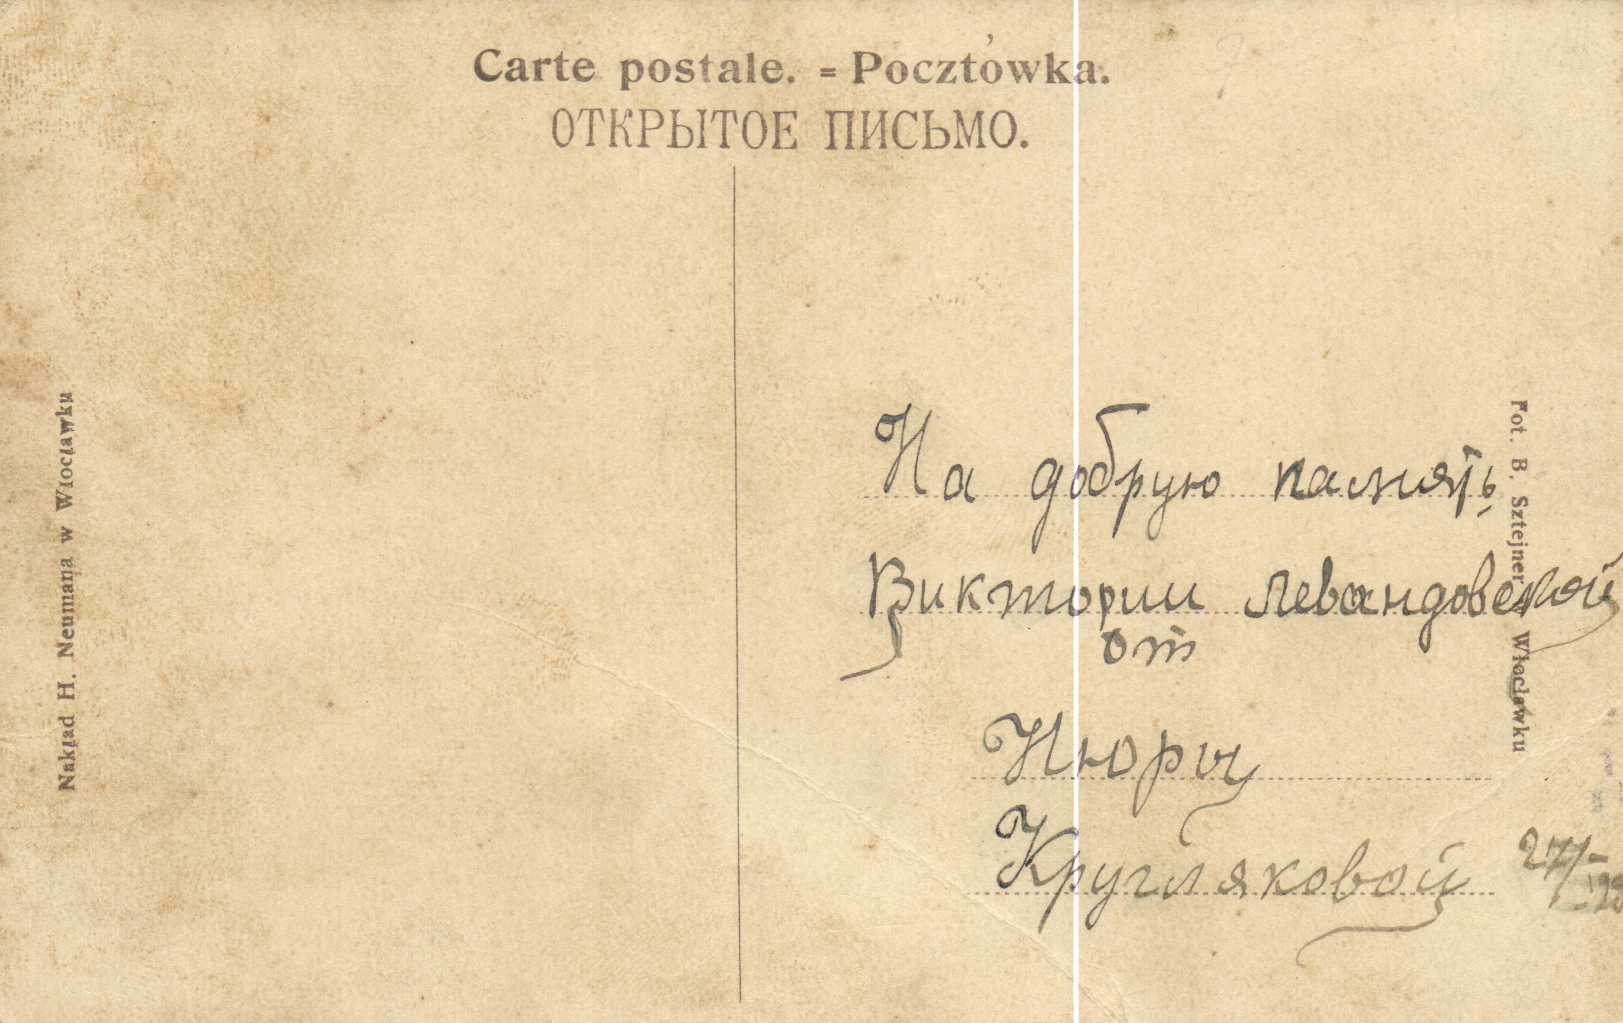 Carte postale. = Pocztówka.
ОТКРЫТОЕ ПИСЬМО.
Nakład H. Neumana w Włocławku
На добрую память
Виктории Левандовской
от
Нюры
Кругляковой
Fot. B. Sztejner Włocławku